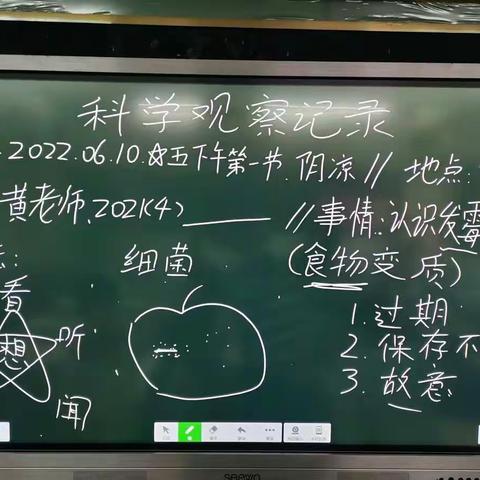 科学观察记录
2022.06.10.☆五下午第一节.阴凉// 地点:
黄老师、2021(4) ______ //事情:认识发霉
(食物变质)
看
想
听
闻
细菌
1.过期
2.保存不
3.故意
seewo